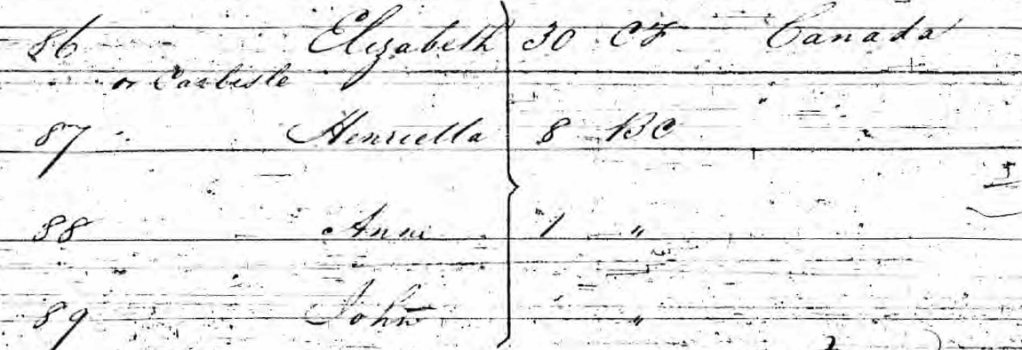 86 Elizabeth 30 CF Canada
or Carlisle
87 Henrietta 8 BC "
88 Anne 1 "
89 John "